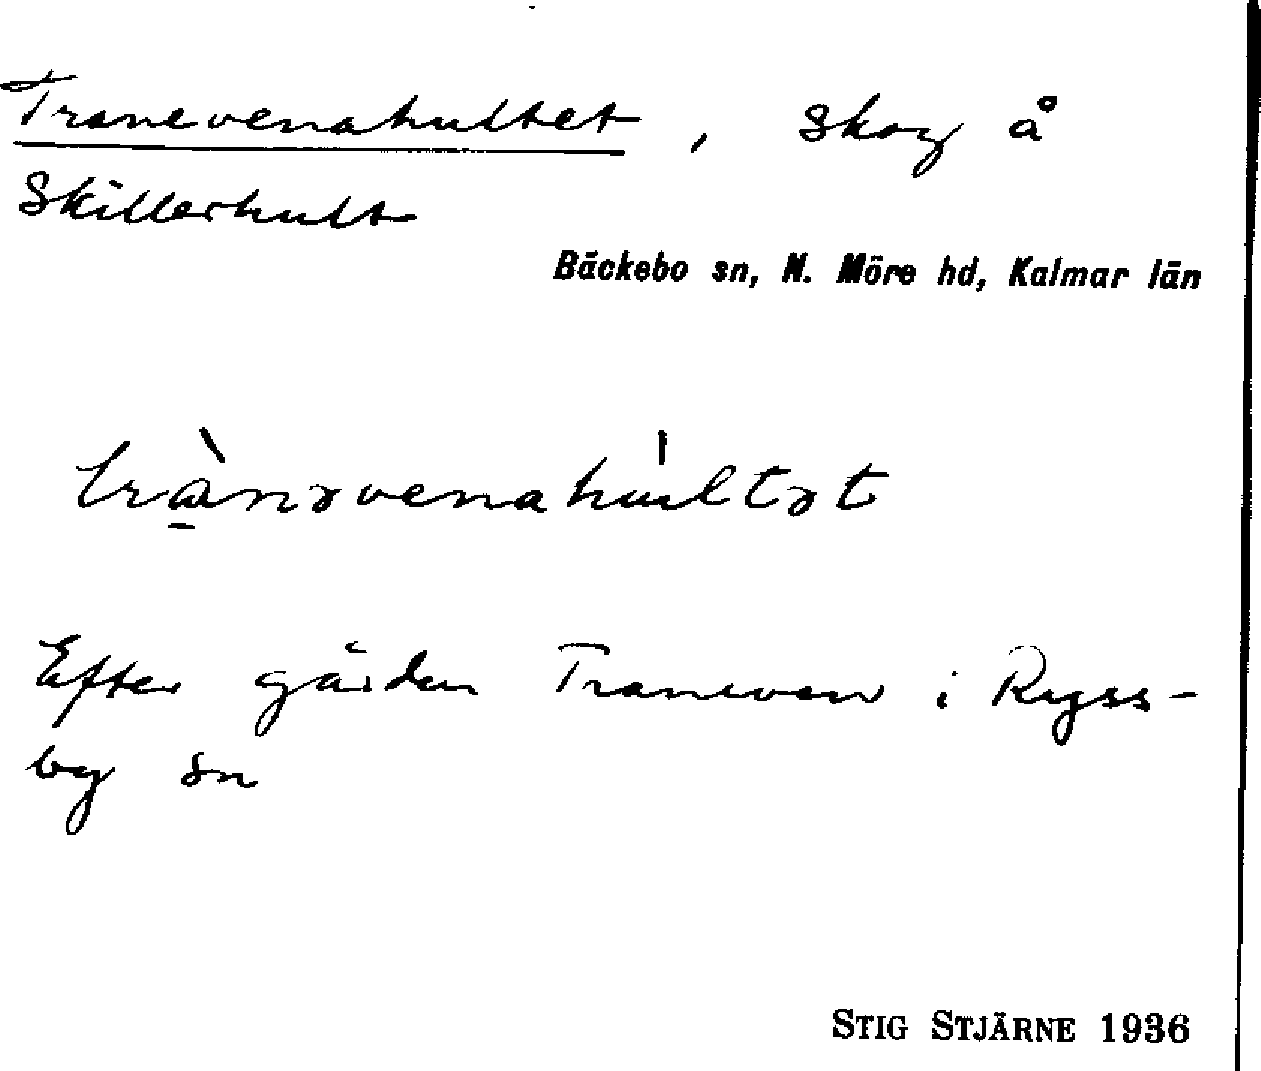 Tranevenahultet, skog å
Skillerhult
Bäckebo sn, N. Möre hd, Kalmar län
trànəvenahu̍ltət
Efter gården Traneven i Ryss-
by sn
STIG STJÄRNE 1936